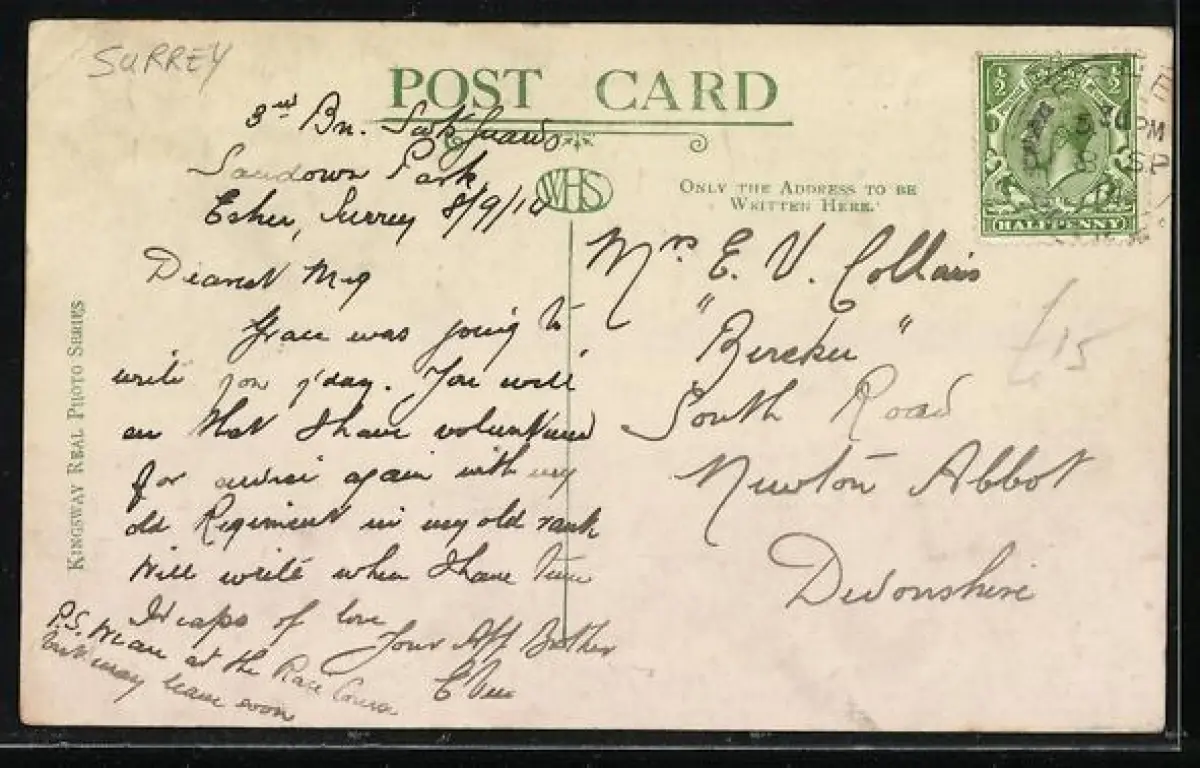 SURREY
POST CARD
3rd Bn. Scots Guards
Sandown Park
Esher, Surrey 8/9/14
WHS
ONLY THE ADDRESS TO BE
WRITTEN HERE.
½ ½
HALFPENNY
PM
SP
Dearest Meg
Grace was going to
write you y'day. You will
see that I have volunteered
for service again with my
old Regiment in my old rank
Will write when I have time
Heaps of love
Your Aff Brother
P.S. We are at the Race Course
but may leave soon
Mrs E. V. Collais
South Road
Newton Abbot
Devonshire
£15
KINGSWAY REAL PHOTO SERIES